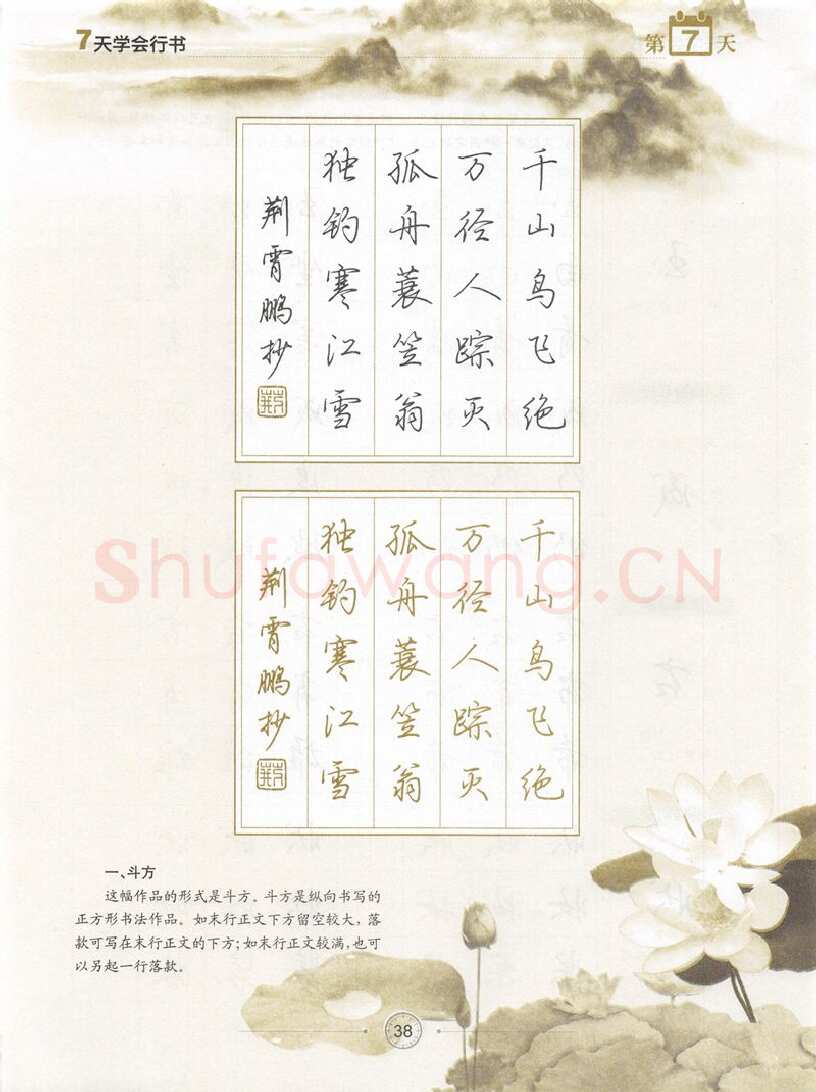 7天学会行书
第7天
千山鸟飞绝
万径人踪灭
孤舟蓑笠翁
独钓寒江雪
荆霄鹏抄
荆
千山鸟飞绝
万径人踪灭
孤舟蓑笠翁
独钓寒江雪
荆霄鹏抄
荆
shufawang.CN
一、斗方
这幅作品的形式是斗方。斗方是纵向书写的
正方形书法作品。如末行正文下方留空较大,落
款可写在末行正文的下方;如末行正文较满,也可
以另起一行落款。
38